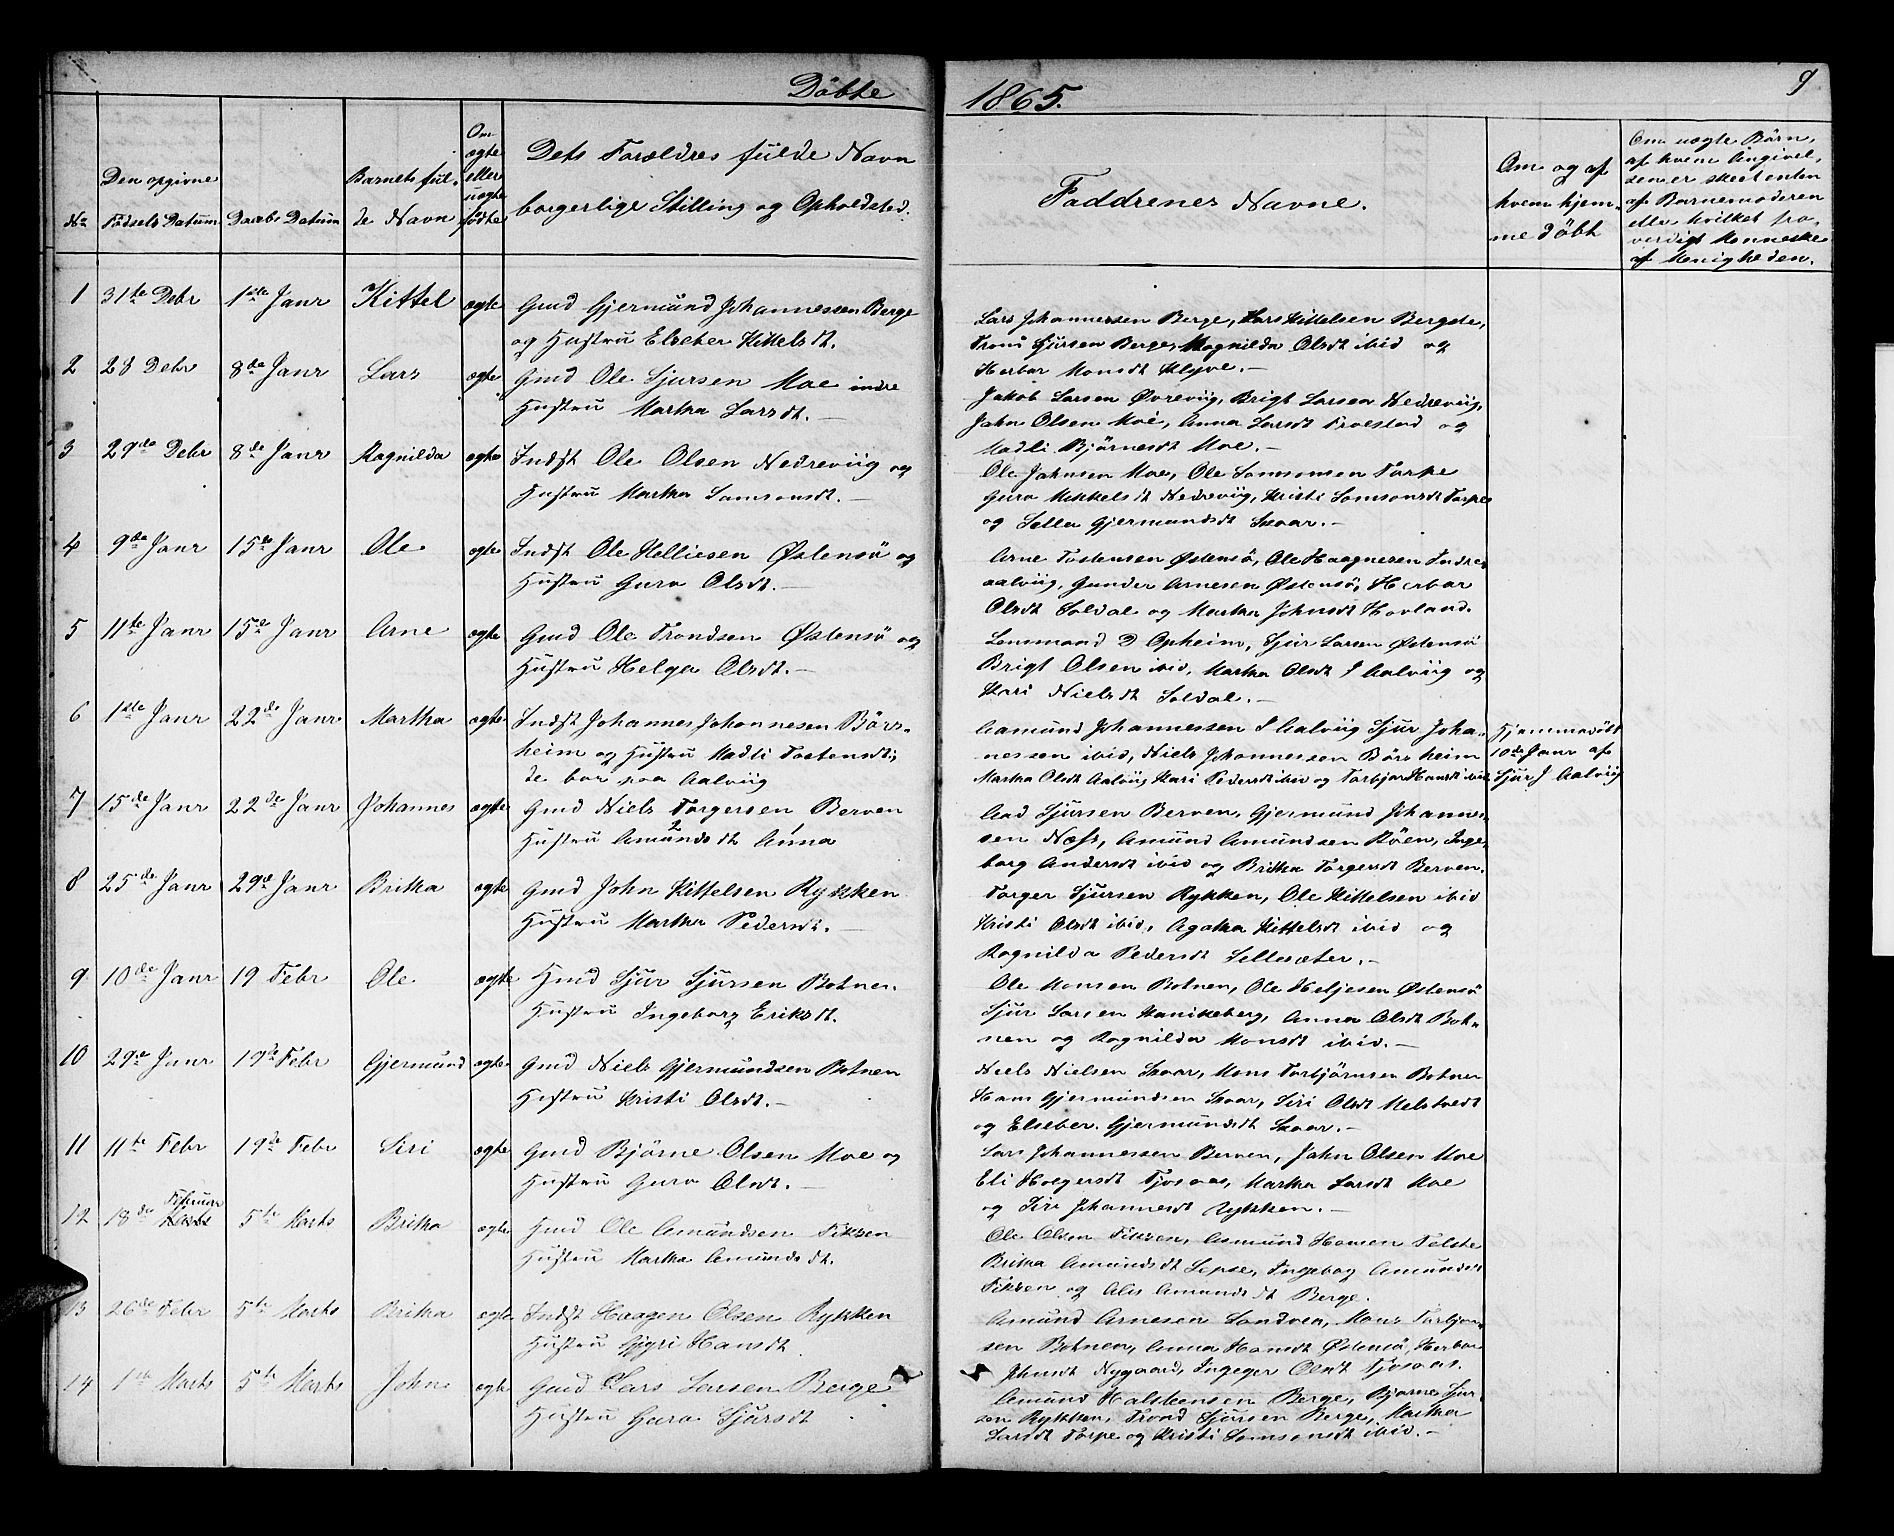 Döbte
1865.
9
No
Den opgivne Fødsels Datum
Daabs Datum
Barnets fulde Navn
Om ægte eller uægte fødte
Dets Forældres fulde Navn
borgerlige Stilling og Opholdsted.
Faddrenes Navne.
Om og af hvem hjemmedöbt
Om uægte Börn, af hvem Angivelsen er skeet enten af Barnemoderen eller hvilket troværdigt Menneske af Menigheden.
1 31te Debr 1ste Janr Kittel ægte Gmd Gjermund Johannessen Berge
og Hustru Elseber Kittelsdt.
Lars Johannessen Berge, Lars Kittelsen Bergste,
Trond Sjursen Berge, Magnilda Olsdt ibid og
Herbor Monsdt Klyve.-
2 28 Debr 8de Janr Lars ægte Gmd Ole Sjursen Moe indre
Hustru Martha Larsdt.-
Jakob Larsen Övreviig, Brigt Larsen Nedreviig,
John Olsen Moe, Anna Larsdt Troestad og
Madli Björnesdt Moe.-
3 29de Debr 8de Janr Ragnilda ægte Indst Ole Olsen Nedreviig og
Hustru Martha Samsonsdt.-
Ole Johnsen Moe, Ole Samsonsen Torpe
Guro Mikkelsdt Nedreviig, Kristi Samsonsdt Torpe
og Sella Gjermundsdt Skaar.-
4 9de Janr 15de Janr Ole ægte Indst Ole Helliesen Östensö og
Hustru Guro Olsdt.-
Arne Tostensen Östensö, Ole Haagnesen Indre
aalviig, Gunder Arnesen Östensö, Herbor
Olsdt Soldal og Martha Johnsdt Hovland.
5 11te Janr 15de Janr Arne ægte Gmd Ole Trondsen Östensö og
Hustru Helga Olsdt.-
Lensmand D Opheim, Sjur Larsen Östensö
Brigt Olsen ibid, Martha Olsdt I Aalviig og
Kari Nielsdt Soldal.-
6 1ste Janr 22de Janr Martha ægte Indst Johannes Johannesen Börs-
heim og Hustru Madli Tostensdt;
de bor paa Aalviig
Aamund Johannessen I Aalviig Sjur Johan-
nessen ibid, Niels Johannessen Börsheim
Martha Olsdt Aalviig, Kari Pedersdt ibid og Torbjor Hansdt ibid
Hjemmedöbt
10de Janr af
Sjur I Aalviig
7 15de Janr 22de Janr Johannes ægte Gmd Niels Torgersen Berven
Hustru Amundsdt Anna
Aad Sjursen Berven, Gjermund Johannes-
sen Næss, Amund Amundsen Röen, Inge-
borg Andersdt ibid og Britha Torgersdt Berven.
8 25de Janr 29de Janr Britha ægte Gmd John Kittelsen Rykken
Hustru Martha Pedersdt.-
Torger Sjursen Rykken, Ole Kittelsen ibid
Kristi Olsdt ibid, Agatha Kittelsdt ibid og
Ragnilda Pedersdt Sellesæter.-
9 10de Janr 19 Febr Ole ægte Gmd Sjur Sjursen Botnen.
Hustru Ingeborg Eriksdt.
Ole Monsen Botnen, Ole Heljesen Östensö
Sjur Larsen Kanikeberg, Anna Olsdt Bot-
nen og Ragnilda Monsdt ibid.-
10 29de Janr 19de Febr Gjermund ægte Gmd Niels Gjermundsen Botnen
Hustru Kristi Olsdt.-
Niels Nielsen Skaar, Mons Torbjörnsen Botnen
Hans Gjermundsen Skaar, Siri Olsdt Melstvedt
og Elseber Gjermundsdt Skaar.-
11 11te Febr 19de Febr Siri ægte Gmd Björne Olsen Moe og
Hustru Guro Olsdt.-
Lars Johannessen Berven, John Olsen Moe
Eli Holgersdt Tjosaas, Martha Larsdt Moe
og Siri Johannesdt Rykken.-
12 18de Februar 5te Marts Britha ægte Gmd Ole Amundsen Fiksen
Hustru Martha Amundsdt.
Ole Olsen Fiksen, Aamund Hansen Tolste
Britha Amundsdt Sepse, Ingebog Amundsdt
Fiksen og Alis Amundsdt Berge.
13 26de Febr 5te Marts Britha ægte Indst Haagen Olsen Rykken
Hustru Gjyri Hansdt.
Amund Arnesen Sandven, Mons Torbjörn-
sen Botnen, Anna Hansdt Östensö, Herbor
Johnsdt Nygaard, Ingeger Olsdt Tjosaas.
14 1ste Marts 5te Marts John ægte Gmd Lars Larsen Berge
Hustru Guro Sjursdt
Amund Halstensen Berge, Bjorne Sjur-
sen Rykken, Trond Sjursen Berge, Martha
Larsdt Torpe og Kristi Samsonsdt ibid.-